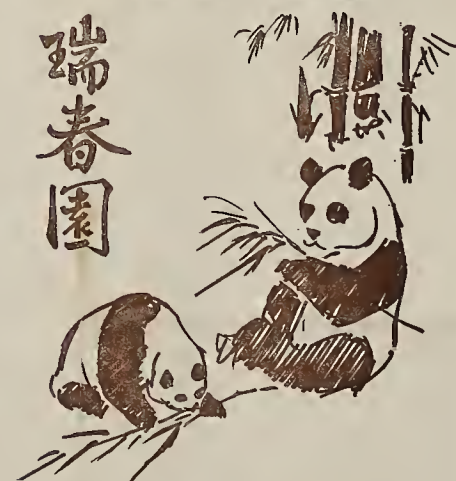 瑞春園